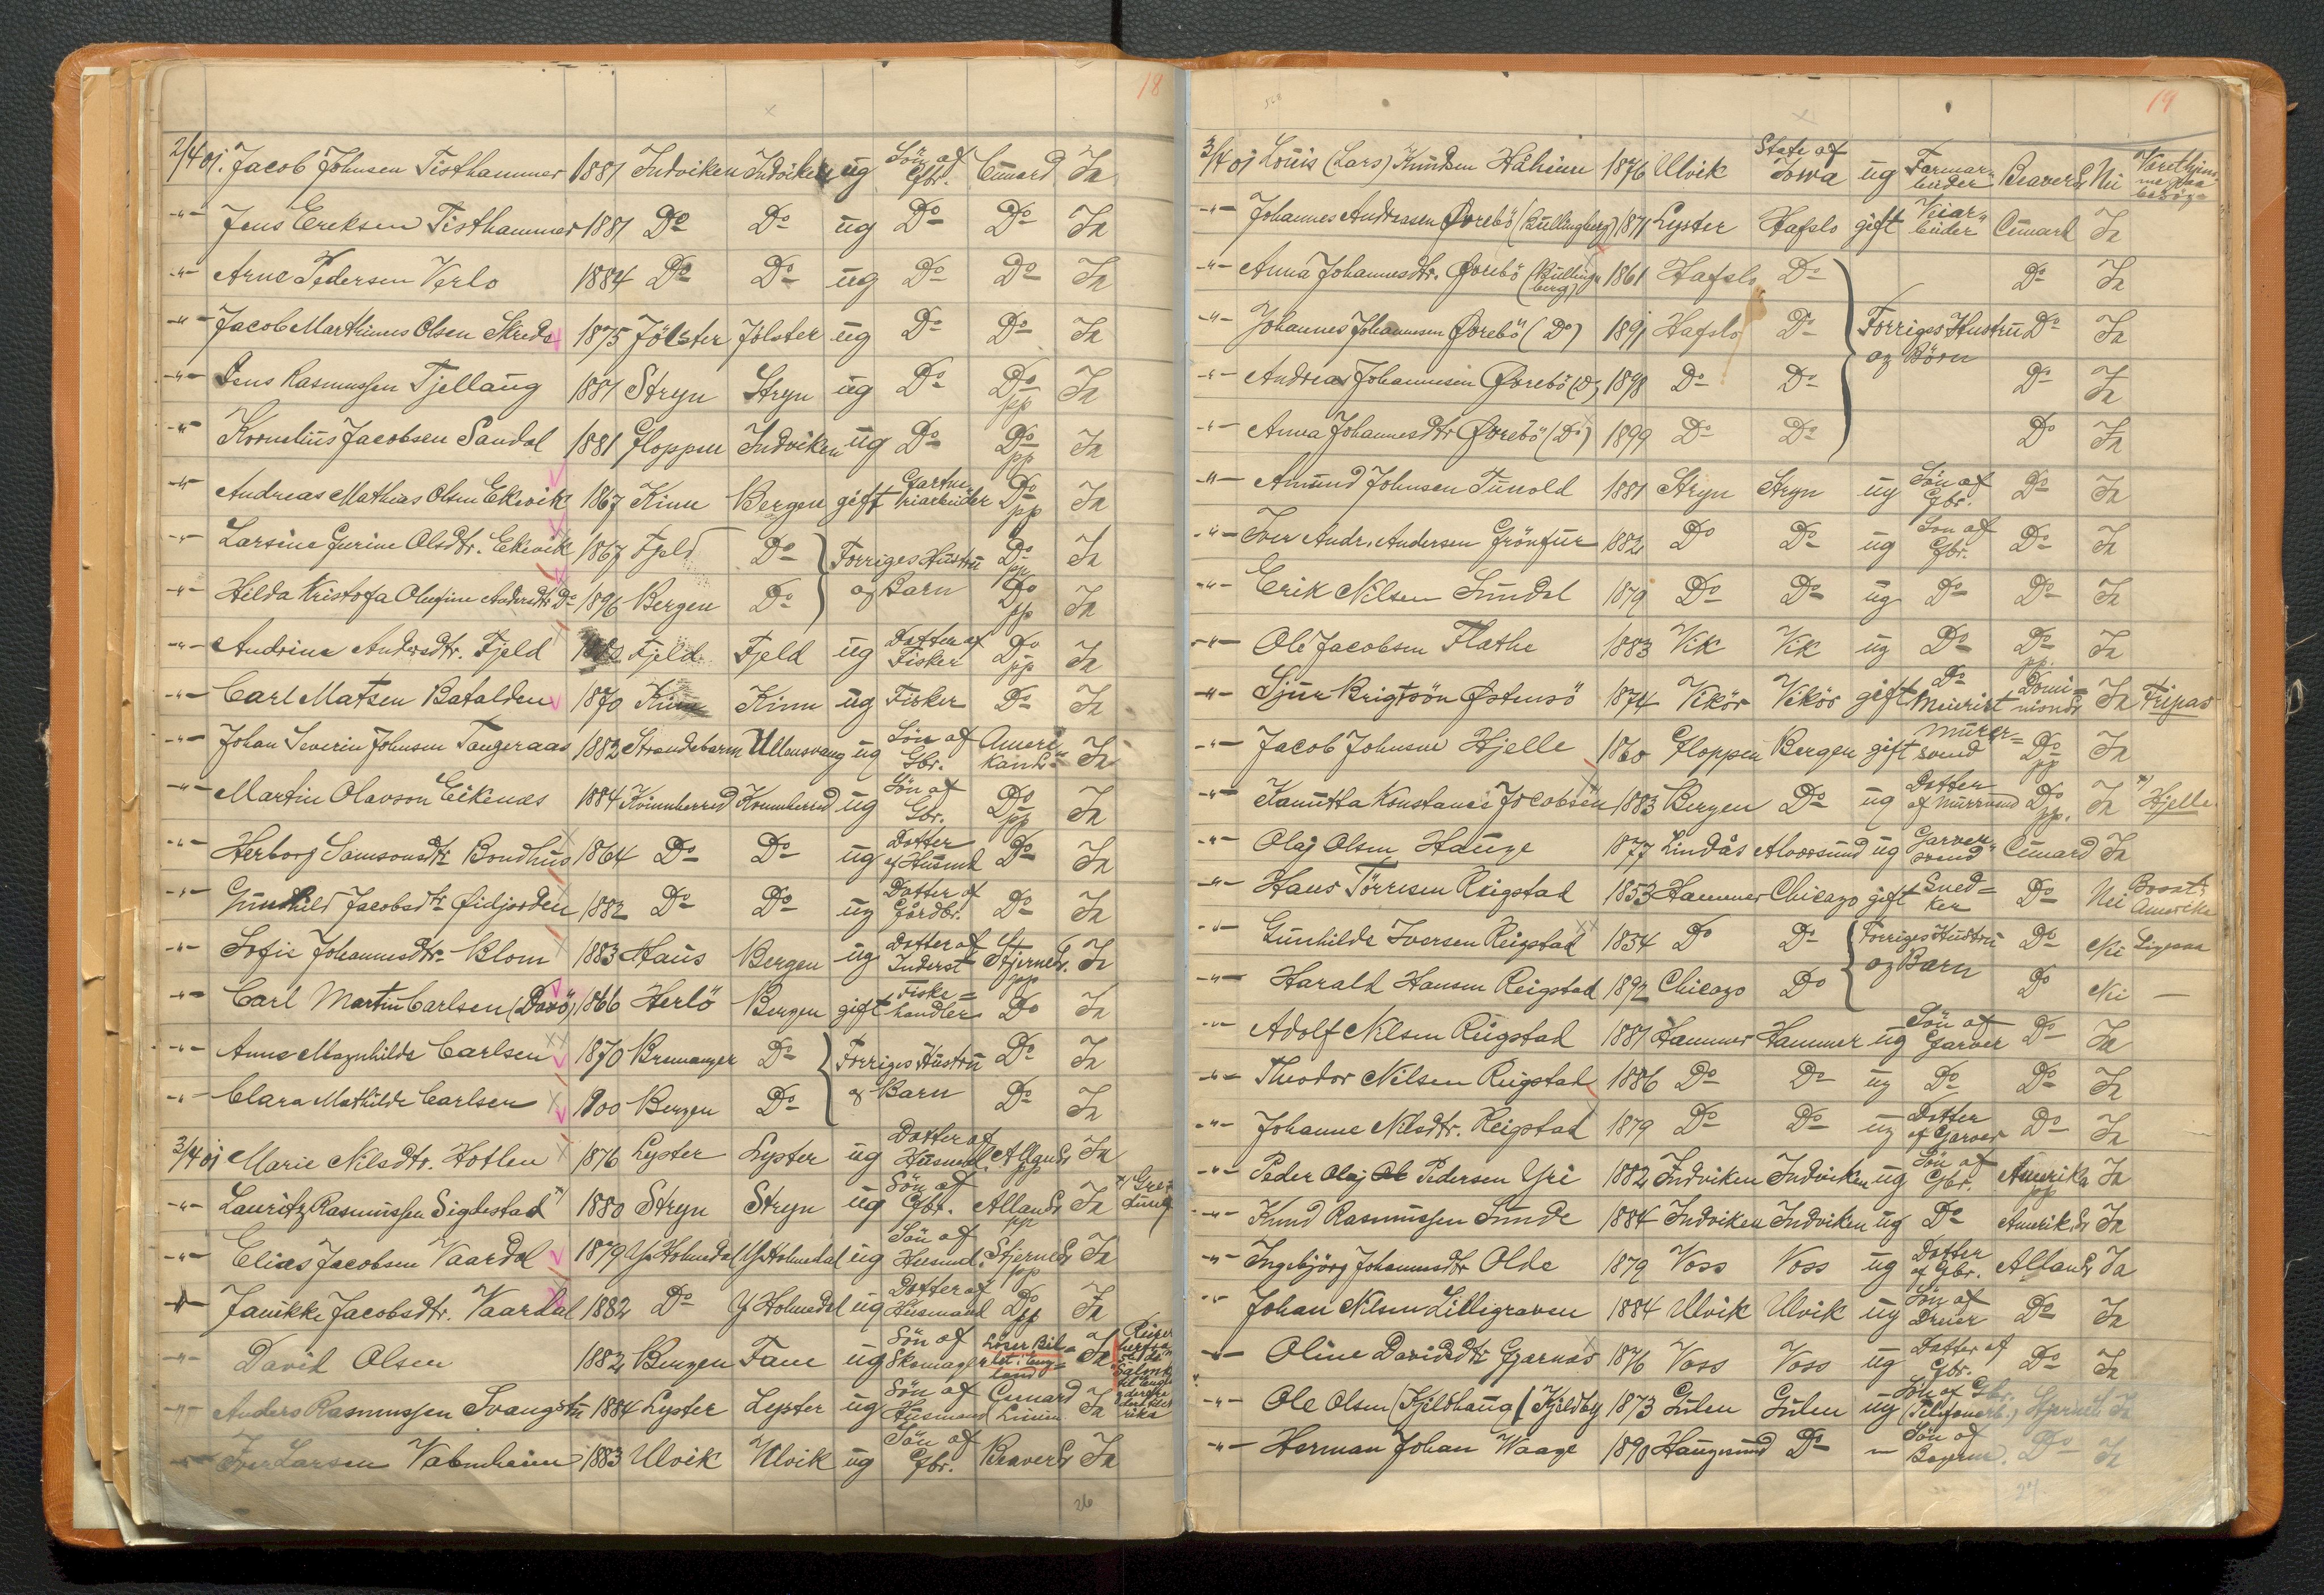 18
2/4 01. Jacob Johnsen Tisthammer 1881 Indviken Indviken ug Sön af Gbr. Cunard Ja
-"- Jens Eriksen Tisthammer 1881 Do Do ug Do Do Ja
-"- Arne Pedersen Verlo 1884 Do Do ug Do Do Ja
-"- Jacob Marthinus Olsen Skrede 1875 Jölster Jölster ug Do Do Ja
-"- Jens Rasmussen Tjellaug 1881 Stryn Stryn ug Do Do pp Ja
-"- Kornelius Jacobsen Sandal 1881 Gloppen Indviken ug Do Do pp Ja
-"- Andreas Mathias Olsen Ekevik 1867 Kinn Bergen gift Gartneriarbeider Do pp Ja
-"- Larsine Gurine Olsdtr. Ekevik 1867 Fjeld Do Forriges Hustru Do pp Ja
-"- Hilda Kristofa Olufine Andersdtr Do 1896 Bergen Do og Barn Do pp Ja
-"- Andrine Andersdtr. Fjeld 1882 Fjeld Fjeld ug Datter af Fisker Do pp Ja
-"- Carl Matsen Batalden 1870 Kinn Kinn ug Fisker Do Ja
-"- Johan Severin Johnsen Tangeraas 1883 Strandebarm Ullensvang ug Sön af Gbr. Amerikanl. Ja
-"- Martin Olavson Eikenæs 1884 Kvinnherred Kvinnherred ug Sön af Gbr. Do pp Ja
-"- Herborg Samsonsdtr Bondhus 1864 Do Do ug Datter af Husmd Do Ja
-"- Gunhild Jacobsdtr Øidjorden 1882 Do Do ug Datter af Gårdbr. Do Ja
-"- Sofie Johannesdtr. Blom 1883 Haus Bergen ug Datter af Inderst Stjernel. pp Ja
-"- Carl Martin Carlsen (Davö) 1866 Herlö Bergen gift Fiskehandler Do Ja
-"- Anne Magnhilde Carlsen 1870 Bremanger Do Forriges Hustru Do Ja
-"- Clara Mathilde Carlsen 1900 Bergen Do og Barn Do Ja
3/4 01 Marie Nilsdtr. Hotlen 1876 Lyster Lyster ug Datter af Husmd. Allanl. pp Ja
-"- Lauritz Rasmussen Sigdestad *) 1880 Stryn Stryn ug Sön af Gbr. Allanl. pp Ja
-"- Elias Jacobsen Vaardal 1879 Y Holmedal Y Holmedal ug Sön af Husmd. Stjernel. pp Ja
-"- Janikke Jacobsdtr. Vaardal 1882 Do Y Holmedal ug Datter af Husmand Do pp Ja
-"- David Olsen 1882 Bergen Fane ug Sön af Skomager Löser Billet i England Ja
-"- Anders Rasmussen Svangstu 1884 Lyster Lyster ug Sön af Husmand Cunard Linien Ja
-"- Iver Larsen Vambheim 1883 Ulvik Ulvik ug Sön af Gbr. Beaverl. Ja
26
19
3/4 01 Louis (Lars) Knudsen Håheim 1876 Ulvik State of Iowa ug Farmarbeider Beaverl. Nei
-"- Johannes Andreasen Øvrebö (Kullingberg) 1871 Lyster Hafslo gift Veiarbeider Cunard Ja
-"- Anna Johannesdtr. Øvrebö (Kullingberg) 1861 Hafslo Do Do Ja
-"- Johannes Johannesen Øvrebö (Do) 1891 Hafslo Do Forriges Hustru og Börn Do Ja
-"- Andreas Johannesen Øvrebö (Do) 1898 Do Do Do Ja
-"- Anna Johannesdtr Øvrebö (Do) 1899 Do Do Do Ja
-"- Amund Johnsen Tunold 1881 Stryn Stryn ug Sön af Gbr. Do Ja
-"- Iver Andr. Andersen Grönfur 1882 Do Do ug Sön af Gbr. Do Ja
-"- Erik Nilsen Sundal 1879 Do Do ug Do Do Ja
-"- Ole Jacobsen Flathe 1883 Vik Vik ug Do Do pp. Ja
-"- Sjur Brigtsön Østensö 1874 Vikör Vikör gift Do Meierist Dominionl. Ja Fripas
-"- Jacob Johnsen Hjelle 1860 Gloppen Bergen gift Murersvend Do pp Ja
-"- Kanutta Konstance Jacobsen *) 1883 Bergen Do ug Datter af Murersvend Do pp. Ja *) Hjelle
-"- Olaj Olsen Hauge 1877 Lindås Alversund ug Garversvend Cunard Ja
-"- Hans Törresen Reigstad 1853 Hammer Chicago gift Snedker Do Nei Bosat i Amerika
-"- Gunhilde Iversen Reigstad 1854 Do Do Forriges Hustru Do Nei Ligesaa
-"- Harald Hansen Reigstad 1892 Chicago Do og Barn Do Nei —
-"- Adolf Nilsen Reigstad 1881 Hammer Hammer ug Sön af Garver Do Ja
-"- Theodor Nilsen Reigstad 1886 Do Do ug Do Do Ja
-"- Johanne Nilsdtr. Reigstad 1879 Do Do ug Datter af Garver Do Ja
-"- Peder Olaj Pedersen Yri 1882 Indviken Indviken ug Sön af Gbr. Amerika pp Ja
-"- Knud Rasmussen Sunde 1884 Indviken Indviken ug Do Amerik.l. Ja
-"- Ingebjörg Johannesdtr Olde 1879 Voss Voss ug Datter af Gbr. Allanl. Ja
-"- Johan Nilsen Lilligraven 1884 Ulvik Ulvik ug Sön af Dreier Do Ja
-"- Oline Davidsdtr Gjernæs 1876 Voss Voss ug Datter af Gbr. Do Ja
-"- Ole Olsen (Kjeldhaug) Kjeldby 1873 Gulen Gulen ug Sön af Gbr. (Telefonarb.) Stjernel. Ja
-"- Herman Johan Waage 1890 Haugesund Do — Sön af Do Ja
27